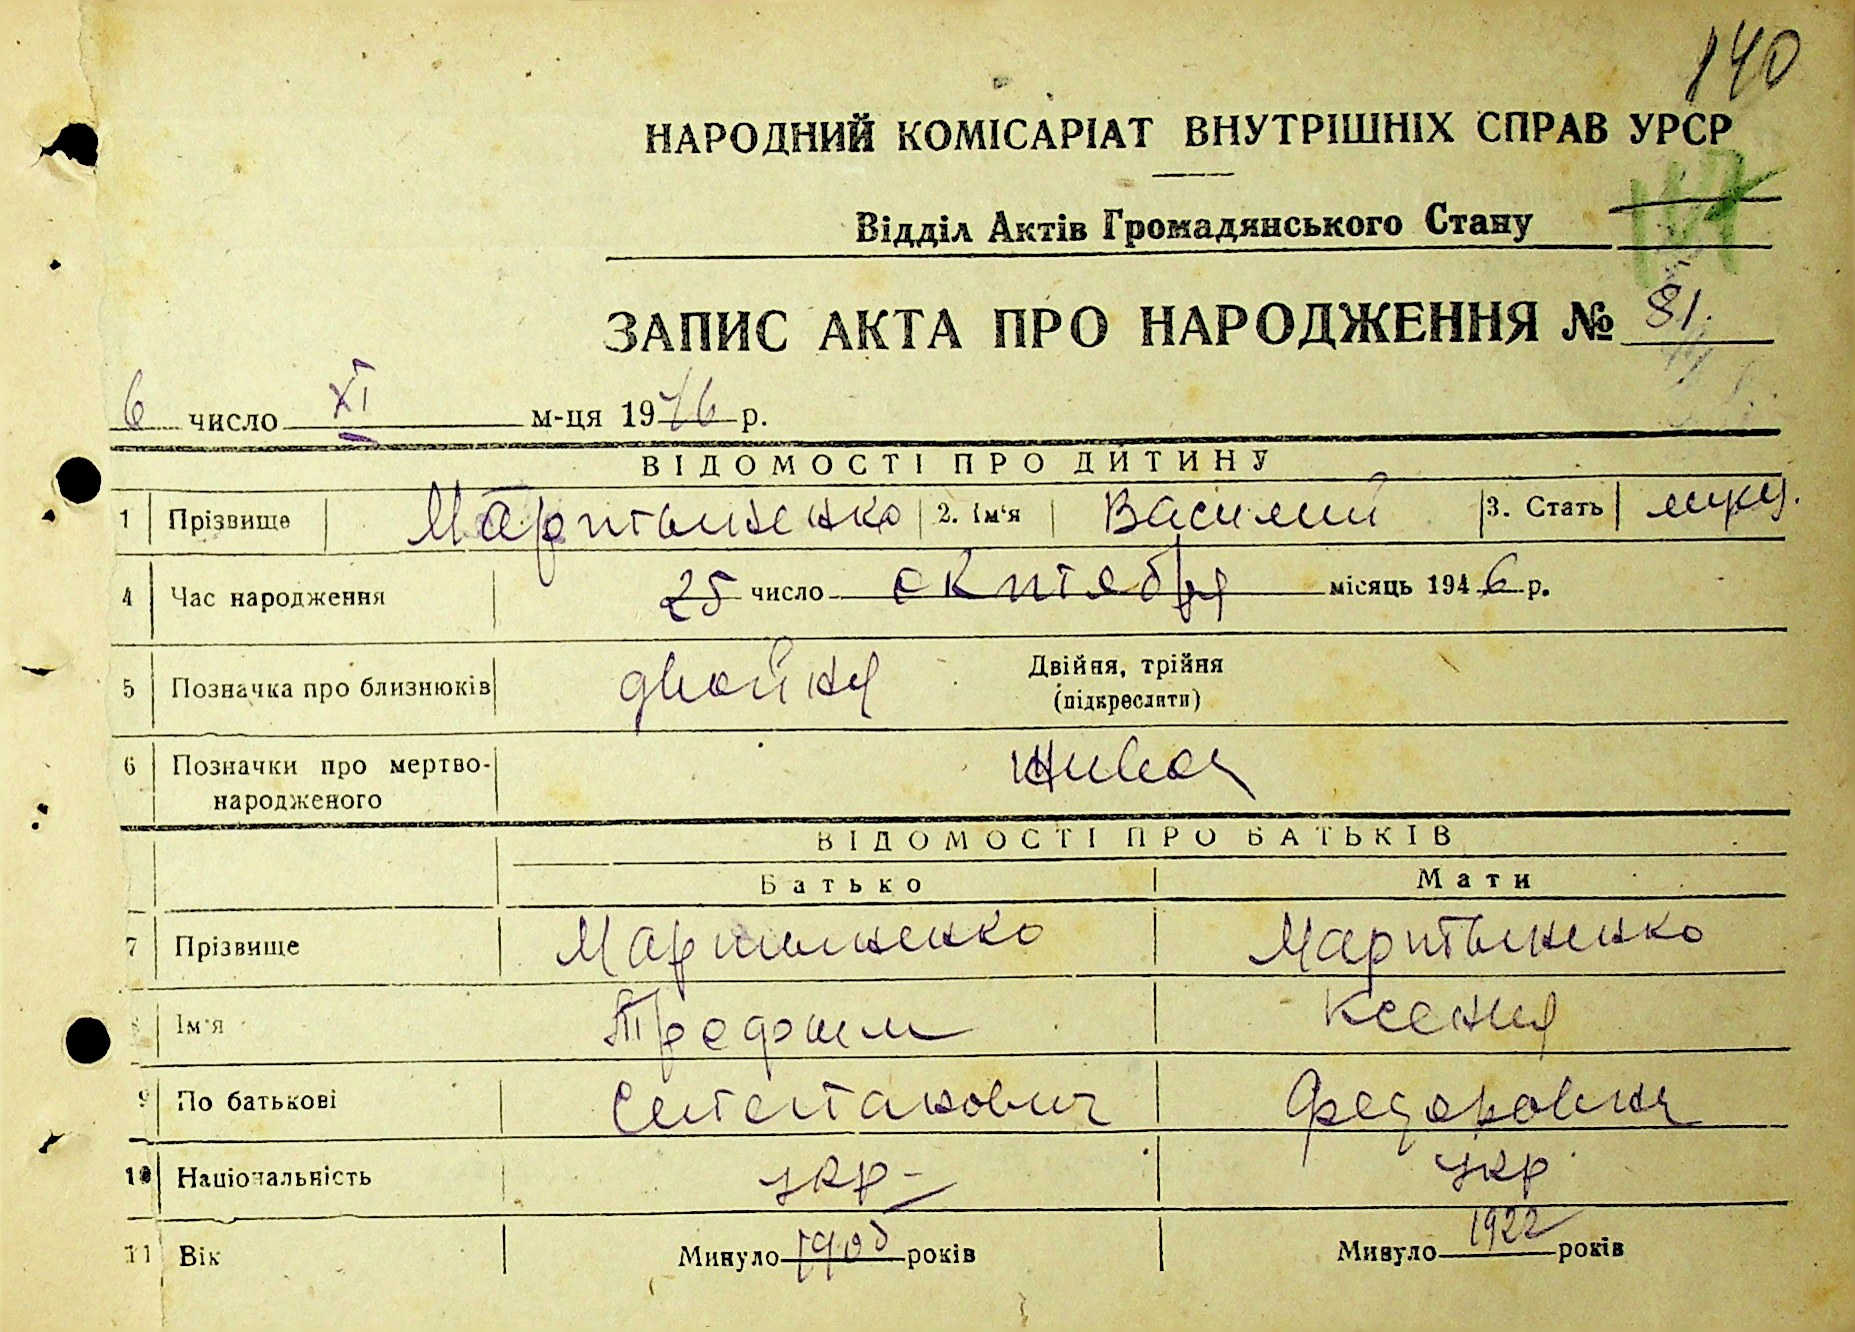 140
НАРОДНИЙ КОМІСАРІАТ ВНУТРІШНІХ СПРАВ УРСР
Відділ Актів Громадянського Стану
ЗАПИС АКТА ПРО НАРОДЖЕННЯ № 81.
6 число XI м-ця 1946 р.
ВІДОМОСТІ ПРО ДИТИНУ
1 Прізвище Мартыненко 2. Ім'я Василий 3. Стать муж.
4 Час народження 25 число октября місяць 1946 р.
5 Позначка про близнюків двойня Двійня, трійня
(підкреслити)
6 Позначки про мертво-
народженого живая
ВІДОМОСТІ ПРО БАТЬКІВ
Батько Мати
7 Прізвище Мартыненко Мартыненко
8 Ім'я Трофим Ксения
9 По батькові Федоровна
10 Національність укр- укр.
11 Вік Минуло років Минуло 1922 років